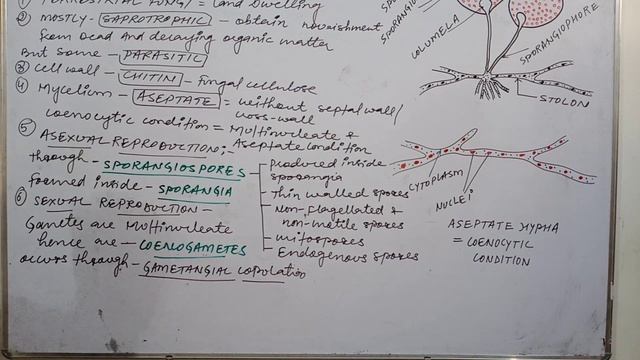 ① TERRESTRIAL FUNGI = Land Dwelling
② MOSTLY - SAPROTROPHIC - obtain nourishment
from Dead and decaying organic matter
But Some - PARASITIC
③ Cell wall - CHITIN - Fungal cellulose
④ Mycelium - ASEPTATE = without septal wall/
cross-wall
coenocytic condition = Multinucleate &
Aseptate condition
⑤ ASEXUAL REPRODUCTION:-
through - SPORANGIOSPORES
formed inside - SPORANGIA
produced inside
sporangia
Thin walled spores
Non-flagellated &
non-motile spores
mitospores
Endogenous spores
⑥ SEXUAL REPRODUCTION -
Gametes are Multinucleate
hence are - COENOGAMETES
occurs through - GAMETANGIAL copulation
COLUMELLA
SPORANGIOPHORE
STOLON
CYTOPLASM
NUCLEI
ASEPTATE HYPHA
= COENOCYTIC
CONDITION